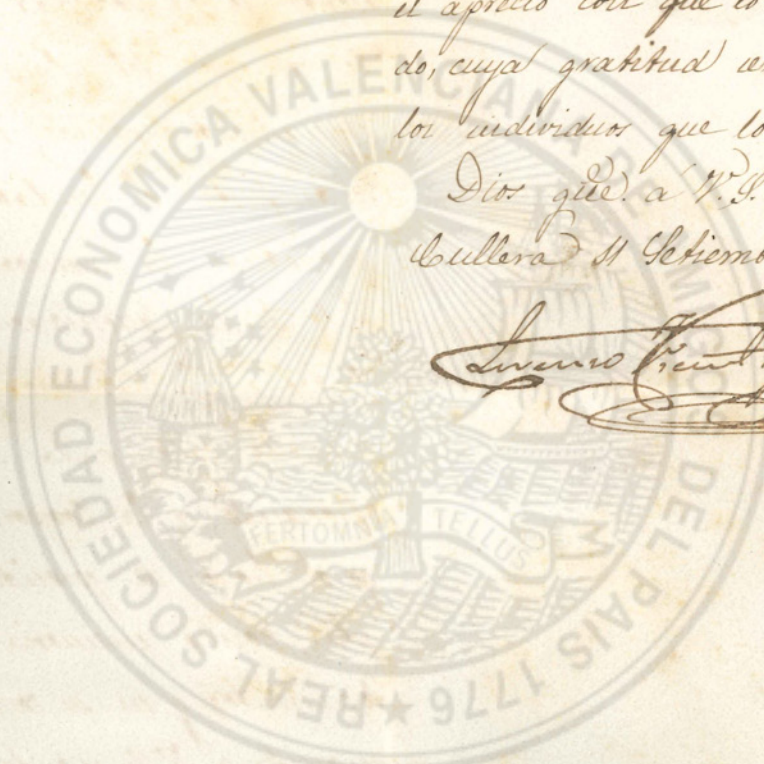 el aprecio con que lo
do, cuya gratitud
los individuos que lo
Dios gűe. a V.S.
Cullera 11 Setiemb
Lorenzo
REAL SOCIEDAD ECONOMICA VALENCIANA DE AMIGOS DEL PAIS 1776 ★
FERTOMNIA TELLUS